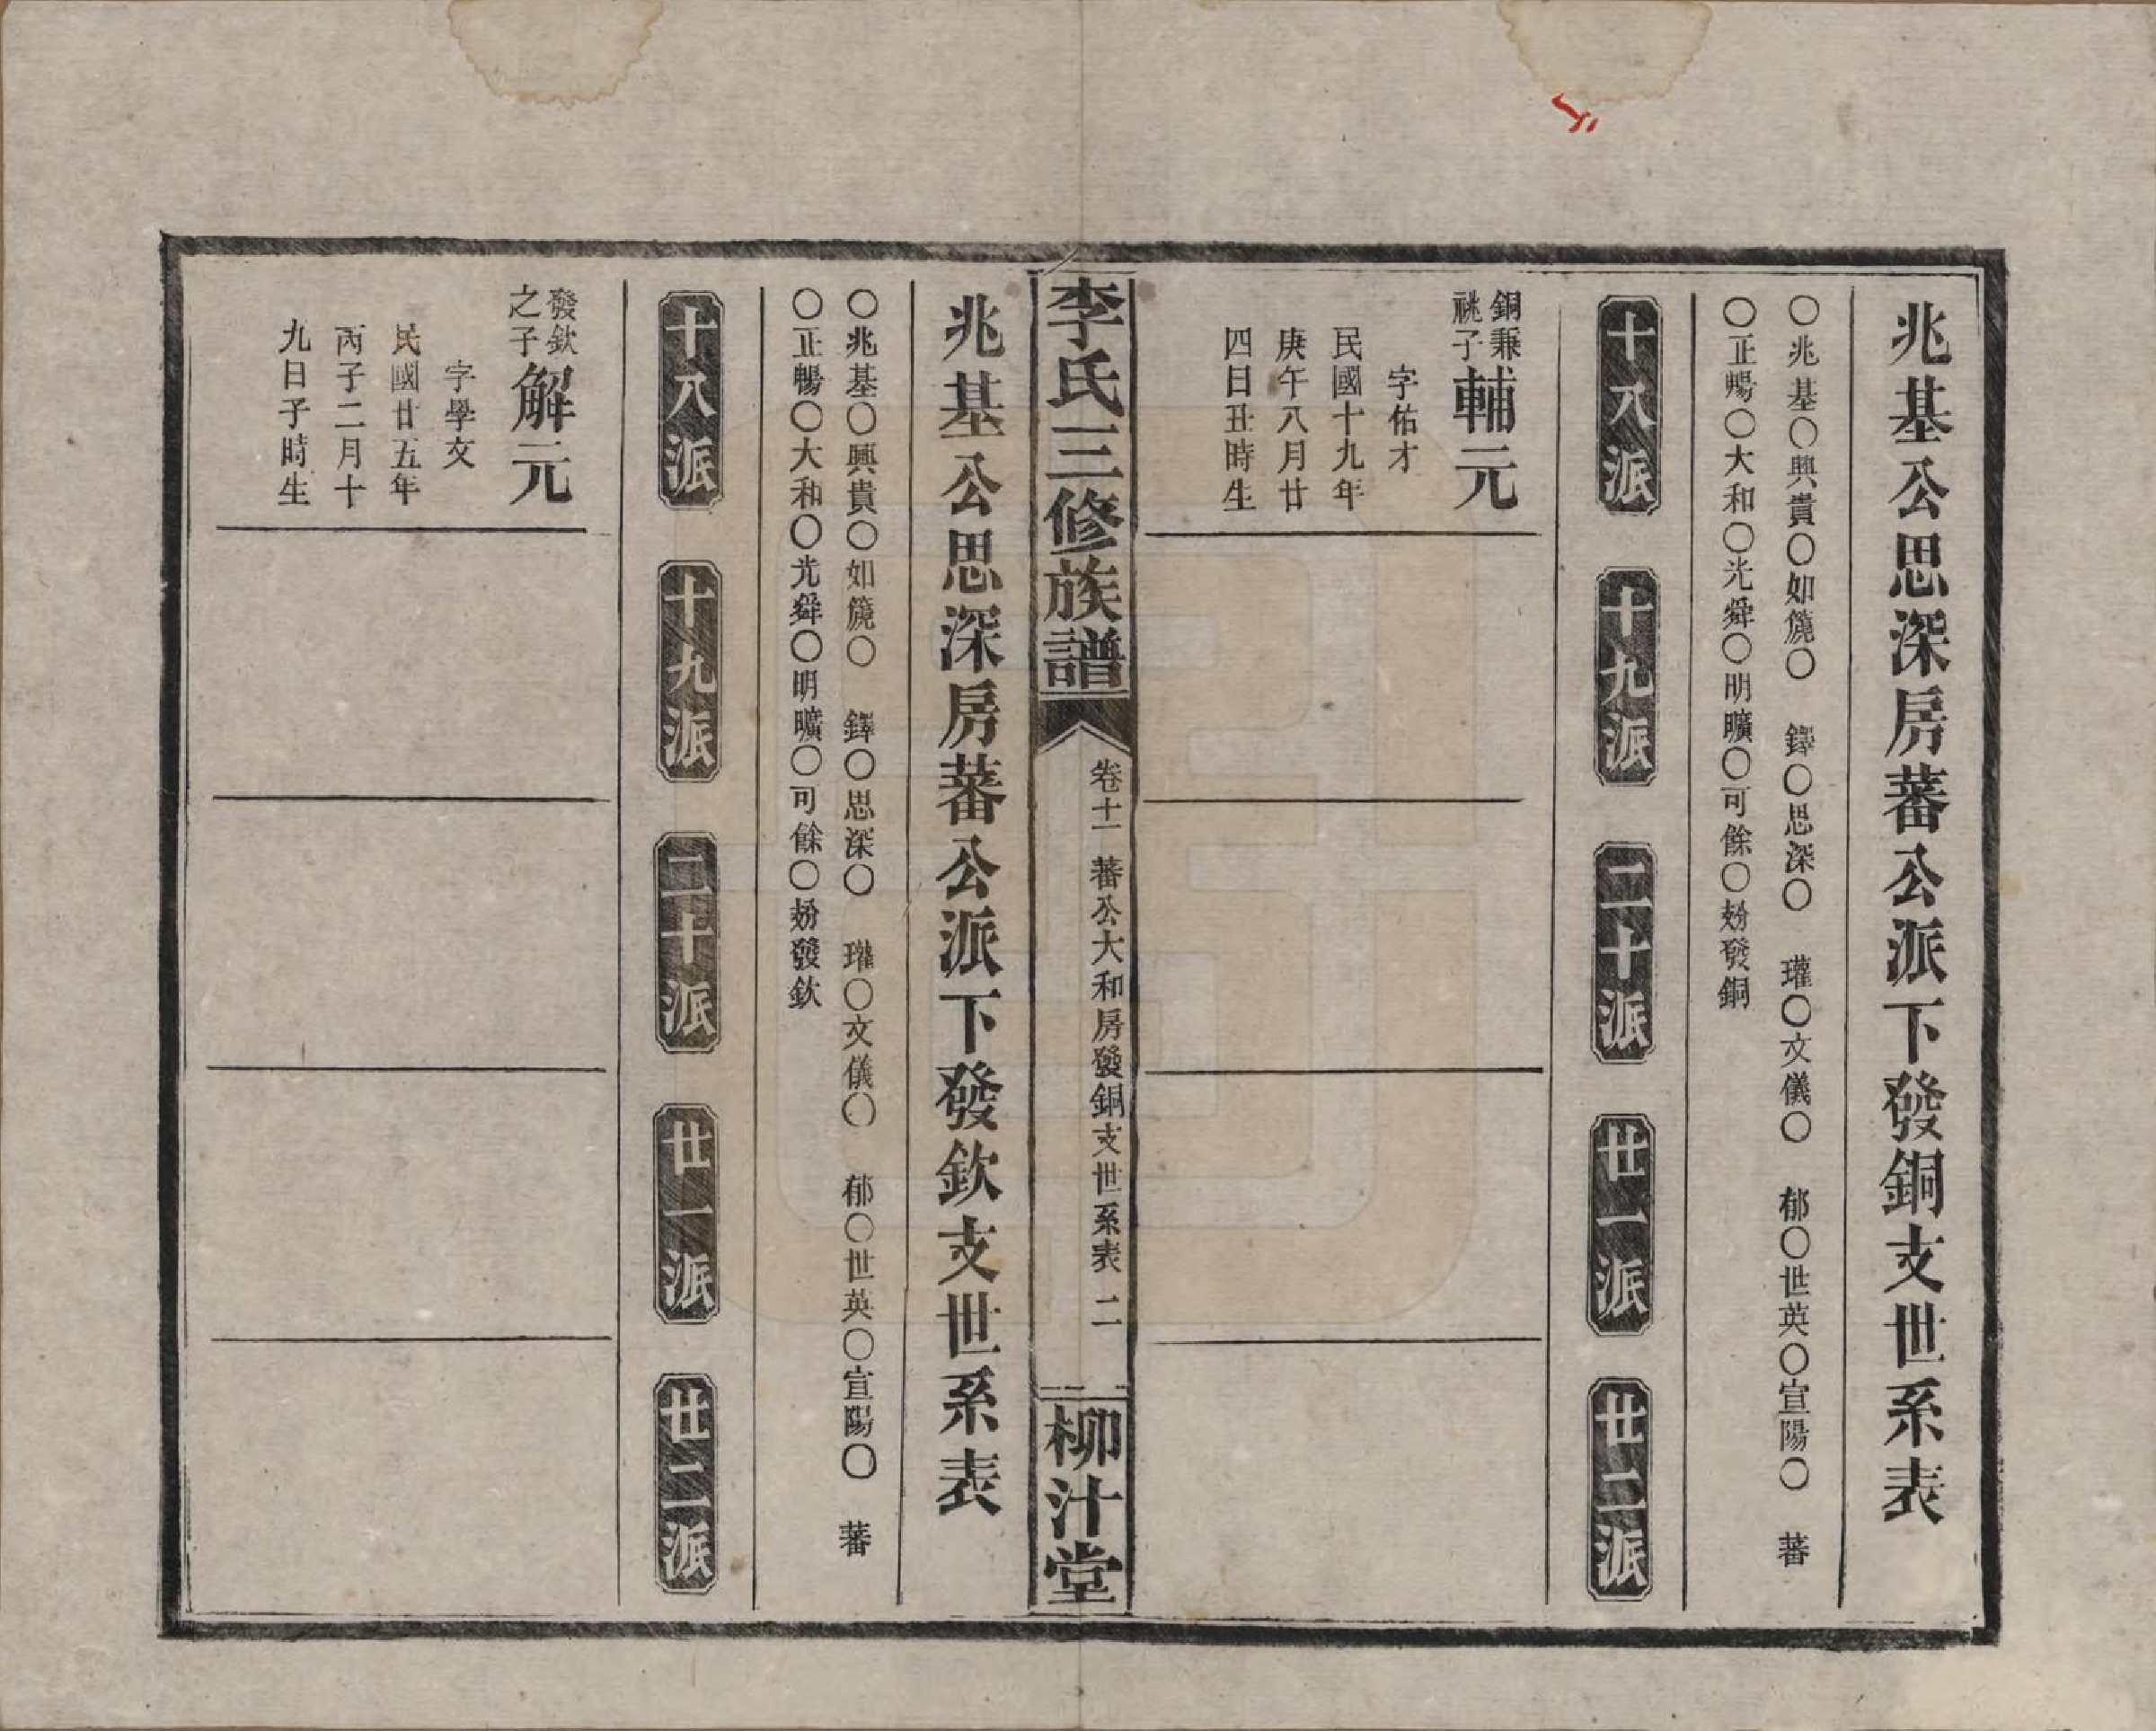 兆基公思深房蕃公派下發銅支世系表
○兆基○興貴○如簏○　鐸○思深○　瓘○文儀○　郁○世英○宣陽○　蕃
○正暢○大和○光舜○明曠○可餘○㛃發銅
十八派
十九派
二十派
廿一派
廿二派
銅兼
祧子
輔元
字佑才
民國十九年
庚午八月廿
四日丑時生
李氏三修族譜
卷十一　蕃公大和房發銅支世系表　二
柳汁堂
兆基公思深房蕃公派下發欽支世系表
○兆基○興貴○如簏○　鐸○思深○　瓘○文儀○　郁○世英○宣陽○　蕃
○正暢○大和○光舜○明曠○可餘○㛃發欽
十八派
十九派
二十派
廿一派
廿二派
發欽
之子
解元
字學文
民國廿五年
丙子二月十
九日子時生